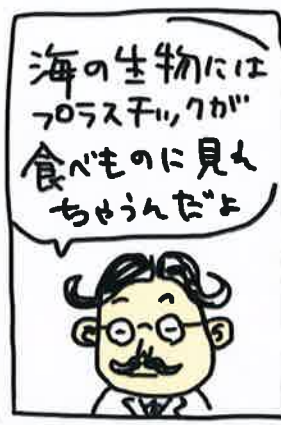 海の生物には
プラスチックが
食べものに見え
ちゃうんだよ